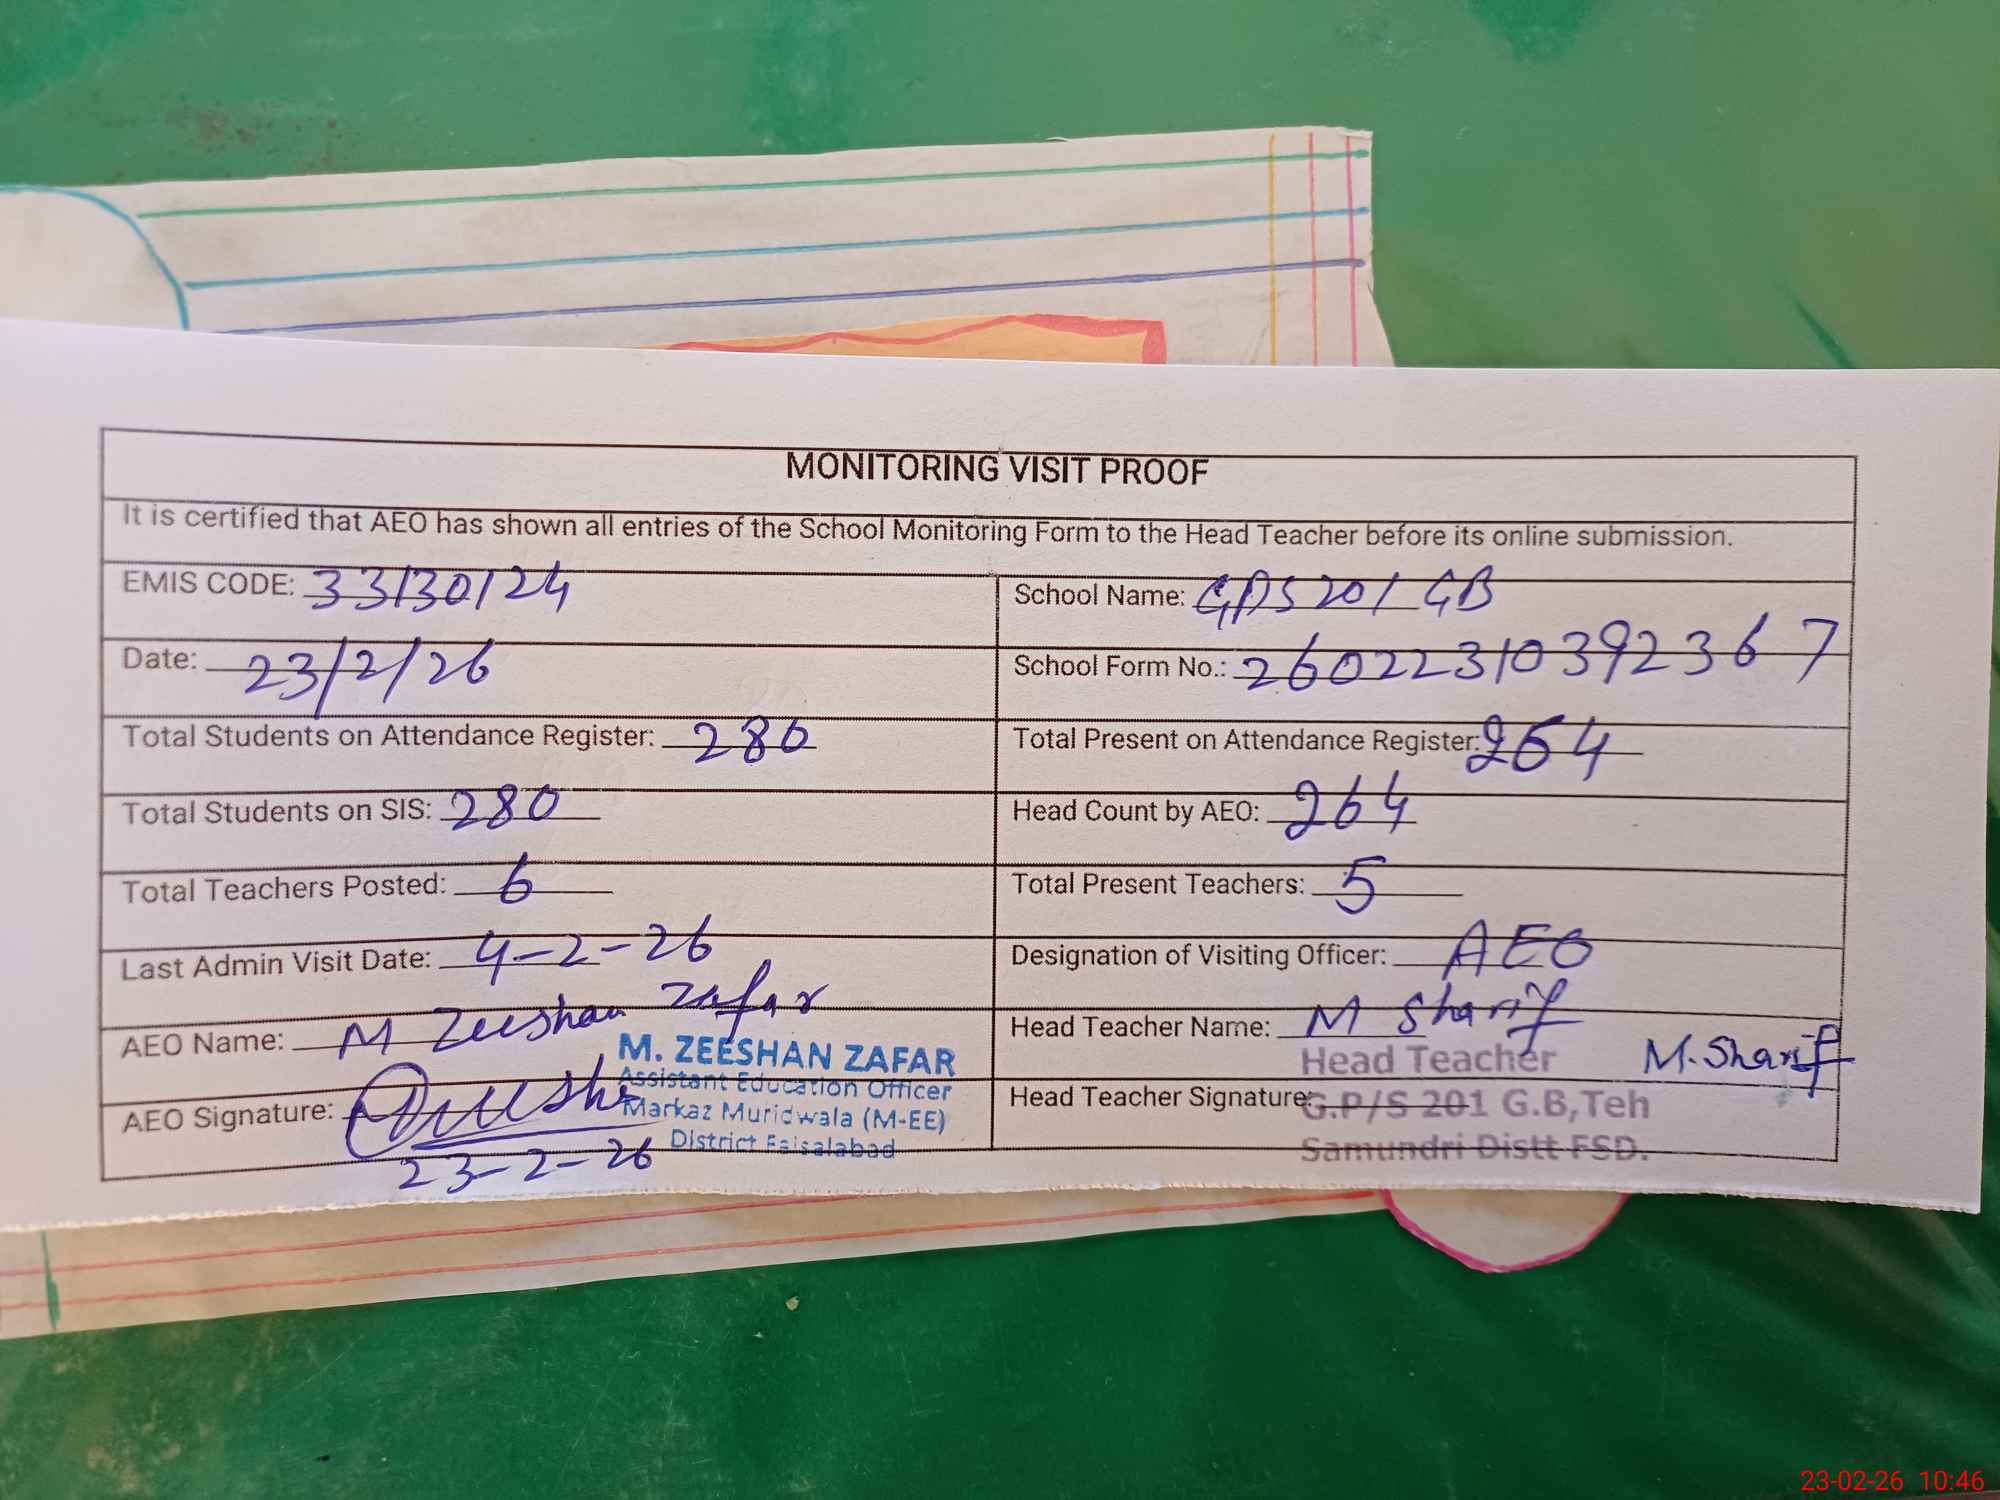 MONITORING VISIT PROOF
It is certified that AEO has shown all entries of the School Monitoring Form to the Head Teacher before its online submission.
EMIS CODE: 33130124
School Name: GPS 201 GB
Date: 23/2/26
School Form No.: 26022310392367
Total Students on Attendance Register: 280
Total Present on Attendance Register: 264
Total Students on SIS: 280
Head Count by AEO: 264
Total Teachers Posted: 6
Total Present Teachers: 5
Last Admin Visit Date: 4-2-26
Designation of Visiting Officer: AEO
AEO Name: M Zeeshan Zafar
Head Teacher Name: M Sharif
M. ZEESHAN ZAFAR
Assistant Education Officer
Markaz Muridwala (M-EE)
District Faisalabad
AEO Signature:
23-2-26
Head Teacher Signature:
M. Sharif
Head Teacher
G.P/S 201 G.B,Teh
Samundri Distt FSD.
23-02-26 10:46